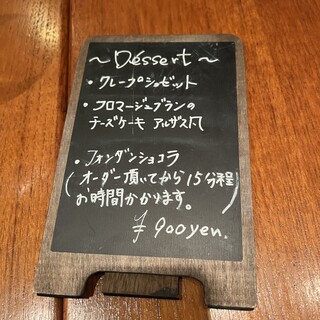 ～Déssert～
・クレープシュゼット
・フロマージュブランの
チーズケーキ アルザス風
・フォンダンショコラ
(オーダー頂いてから15分程
お時間かかります。)
¥900yen.